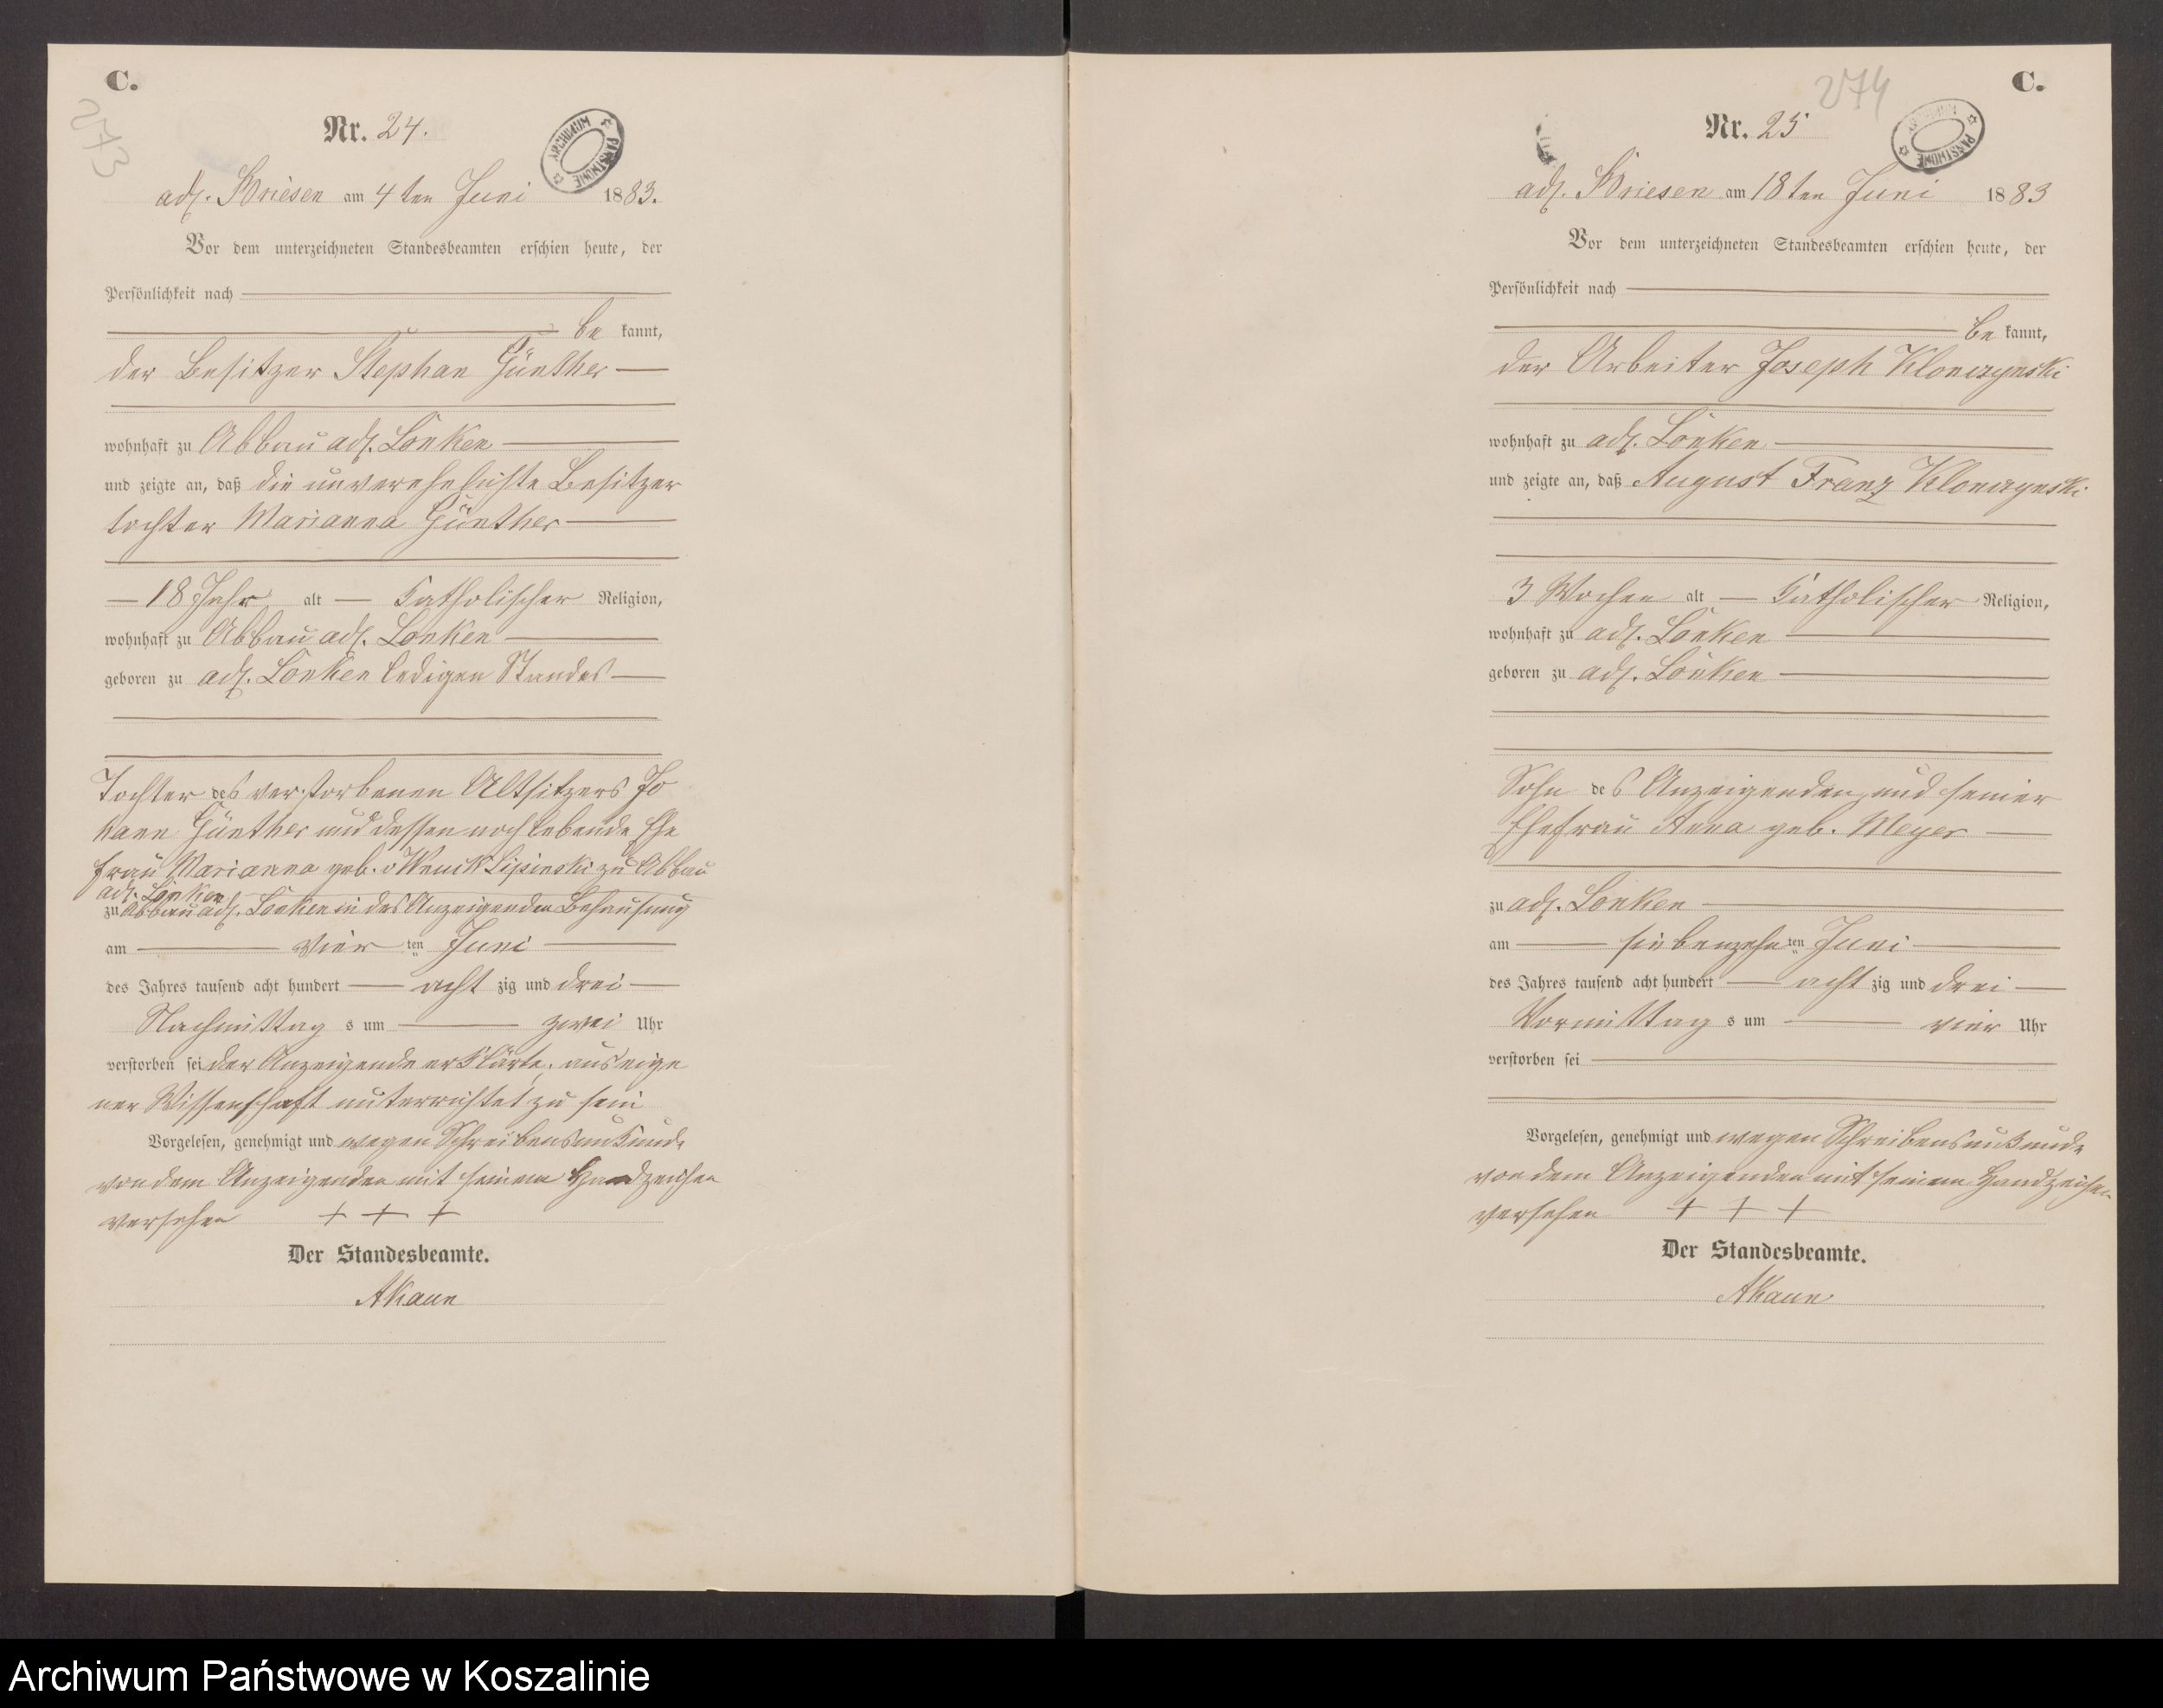 C.
273
Nr. 24.
ARCHIWUM PAŃSTWOWE
adl. Briesen am 4ten Juni 1883.
Vor dem unterzeichneten Standesbeamten erschien heute, der
Persönlichkeit nach
be kannt,
der Besitzer Stephan Günther
wohnhaft zu Abbau adl. Lonken
und zeigte an, daß die unverehelichte Besitzer
tochter Marianna Günther
18 Jahr alt Katholischer Religion,
wohnhaft zu Abbau adl. Lonken
geboren zu adl. Lonken ledigen Standes
Tochter des verstorbenen Altsitzers Jo
hann Günther und dessen noch lebende Ehe
frau Marianna geb. v Wenck Lipinski zu Abbau
adl. Lonken
zu Abbau adl. Lonken in des Anzeigenden Behausung
am vier ten Juni
des Jahres tausend acht hundert acht zig und drei
Nachmittag s um zwei Uhr
verstorben sei der Anzeigende erklärte, aus eige
ner Wissenschaft unterrichtet zu sein
Vorgelesen, genehmigt und wegen Schreibensunkunde
von dem Anzeigenden mit seinem Handzeichen
versehen + + +
Der Standesbeamte.
AKaun
274
C.
Nr. 25
ARCHIWUM PAŃSTWOWE
adl. Briesen am 18ten Juni 1883
Vor dem unterzeichneten Standesbeamten erschien heute, der
Persönlichkeit nach
be kannt,
der Arbeiter Joseph Klonczynski
wohnhaft zu adl. Lonken
und zeigte an, daß August Franz Klonczynski
3 Wochen alt Katholischer Religion,
wohnhaft zu adl. Lonken
geboren zu adl. Lonken
Sohn des Anzeigenden und seiner
Ehefrau Anna geb. Meyer
zu adl. Lonken
am siebenzehn ten Juni
des Jahres tausend acht hundert acht zig und drei
Vormittag s um vier Uhr
verstorben sei
Vorgelesen, genehmigt und wegen Schreibensunkunde
von dem Anzeigenden mit seinem Handzeichen
versehen + + +
Der Standesbeamte.
AKaun
Archiwum Państwowe w Koszalinie